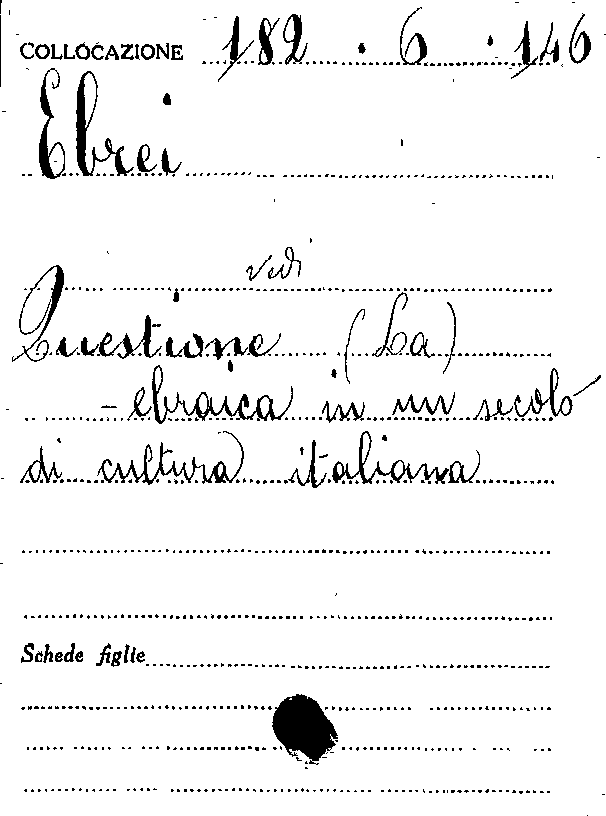 COLLOCAZIONE 182 . 6 . 146
Ebrei
vedi
Questione (La)
- ebraica in un secolo
di cultura italiana
Schede figlie